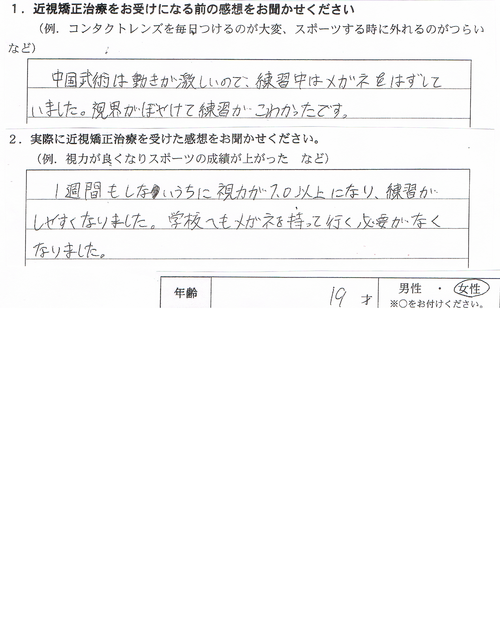 １．近視矯正治療をお受けになる前の感想をお聞かせください
（例．コンタクトレンズを毎日つけるのが大変、スポーツする時に外れるのがつらい
など）
中国武術は動きが激しいので、練習中はメガネをはずして
いました。視界がぼやけて練習がこわかったです。
２．実際に近視矯正治療を受けた感想をお聞かせください。
（例．視力が良くなりスポーツの成績が上がった　など）
1週間もしないうちに視力が1.0以上になり、練習が
しやすくなりました。学校へもメガネを持って行く必要がなく
なりました。
年齢　19才　男性・女性
※○をお付けください。